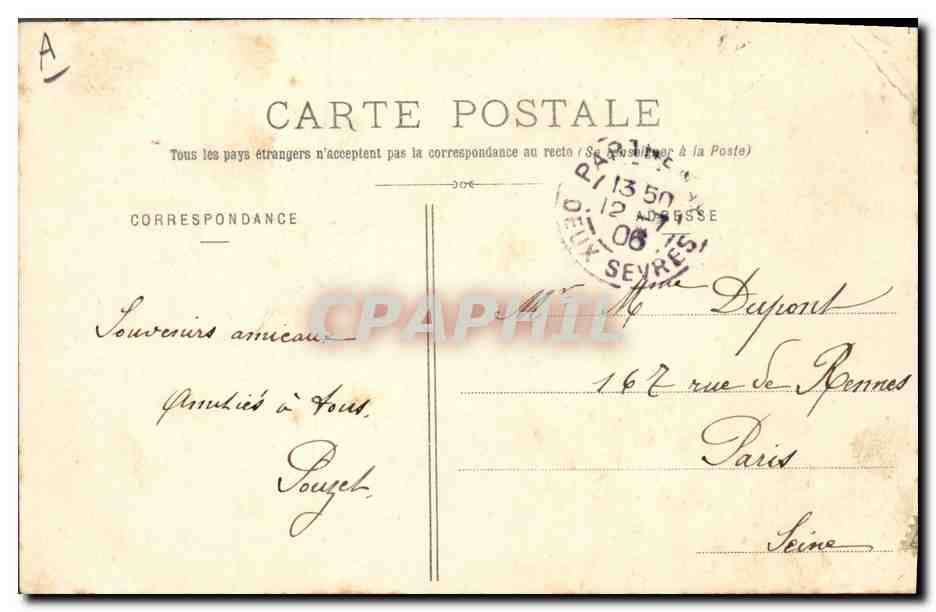 A
CARTE POSTALE
Tous les pays étrangers n'acceptent pas la correspondance au recto (Se renseigner à la Poste)
CORRESPONDANCE
ADRESSE
13 50
12 -7
06
DEUX SEVRES
Mr Mme Dupont
CPAPHIL
Souvenirs amicaux
167 rue de Rennes
Amitiés à tous.
Paris
Pouzet.
Seine